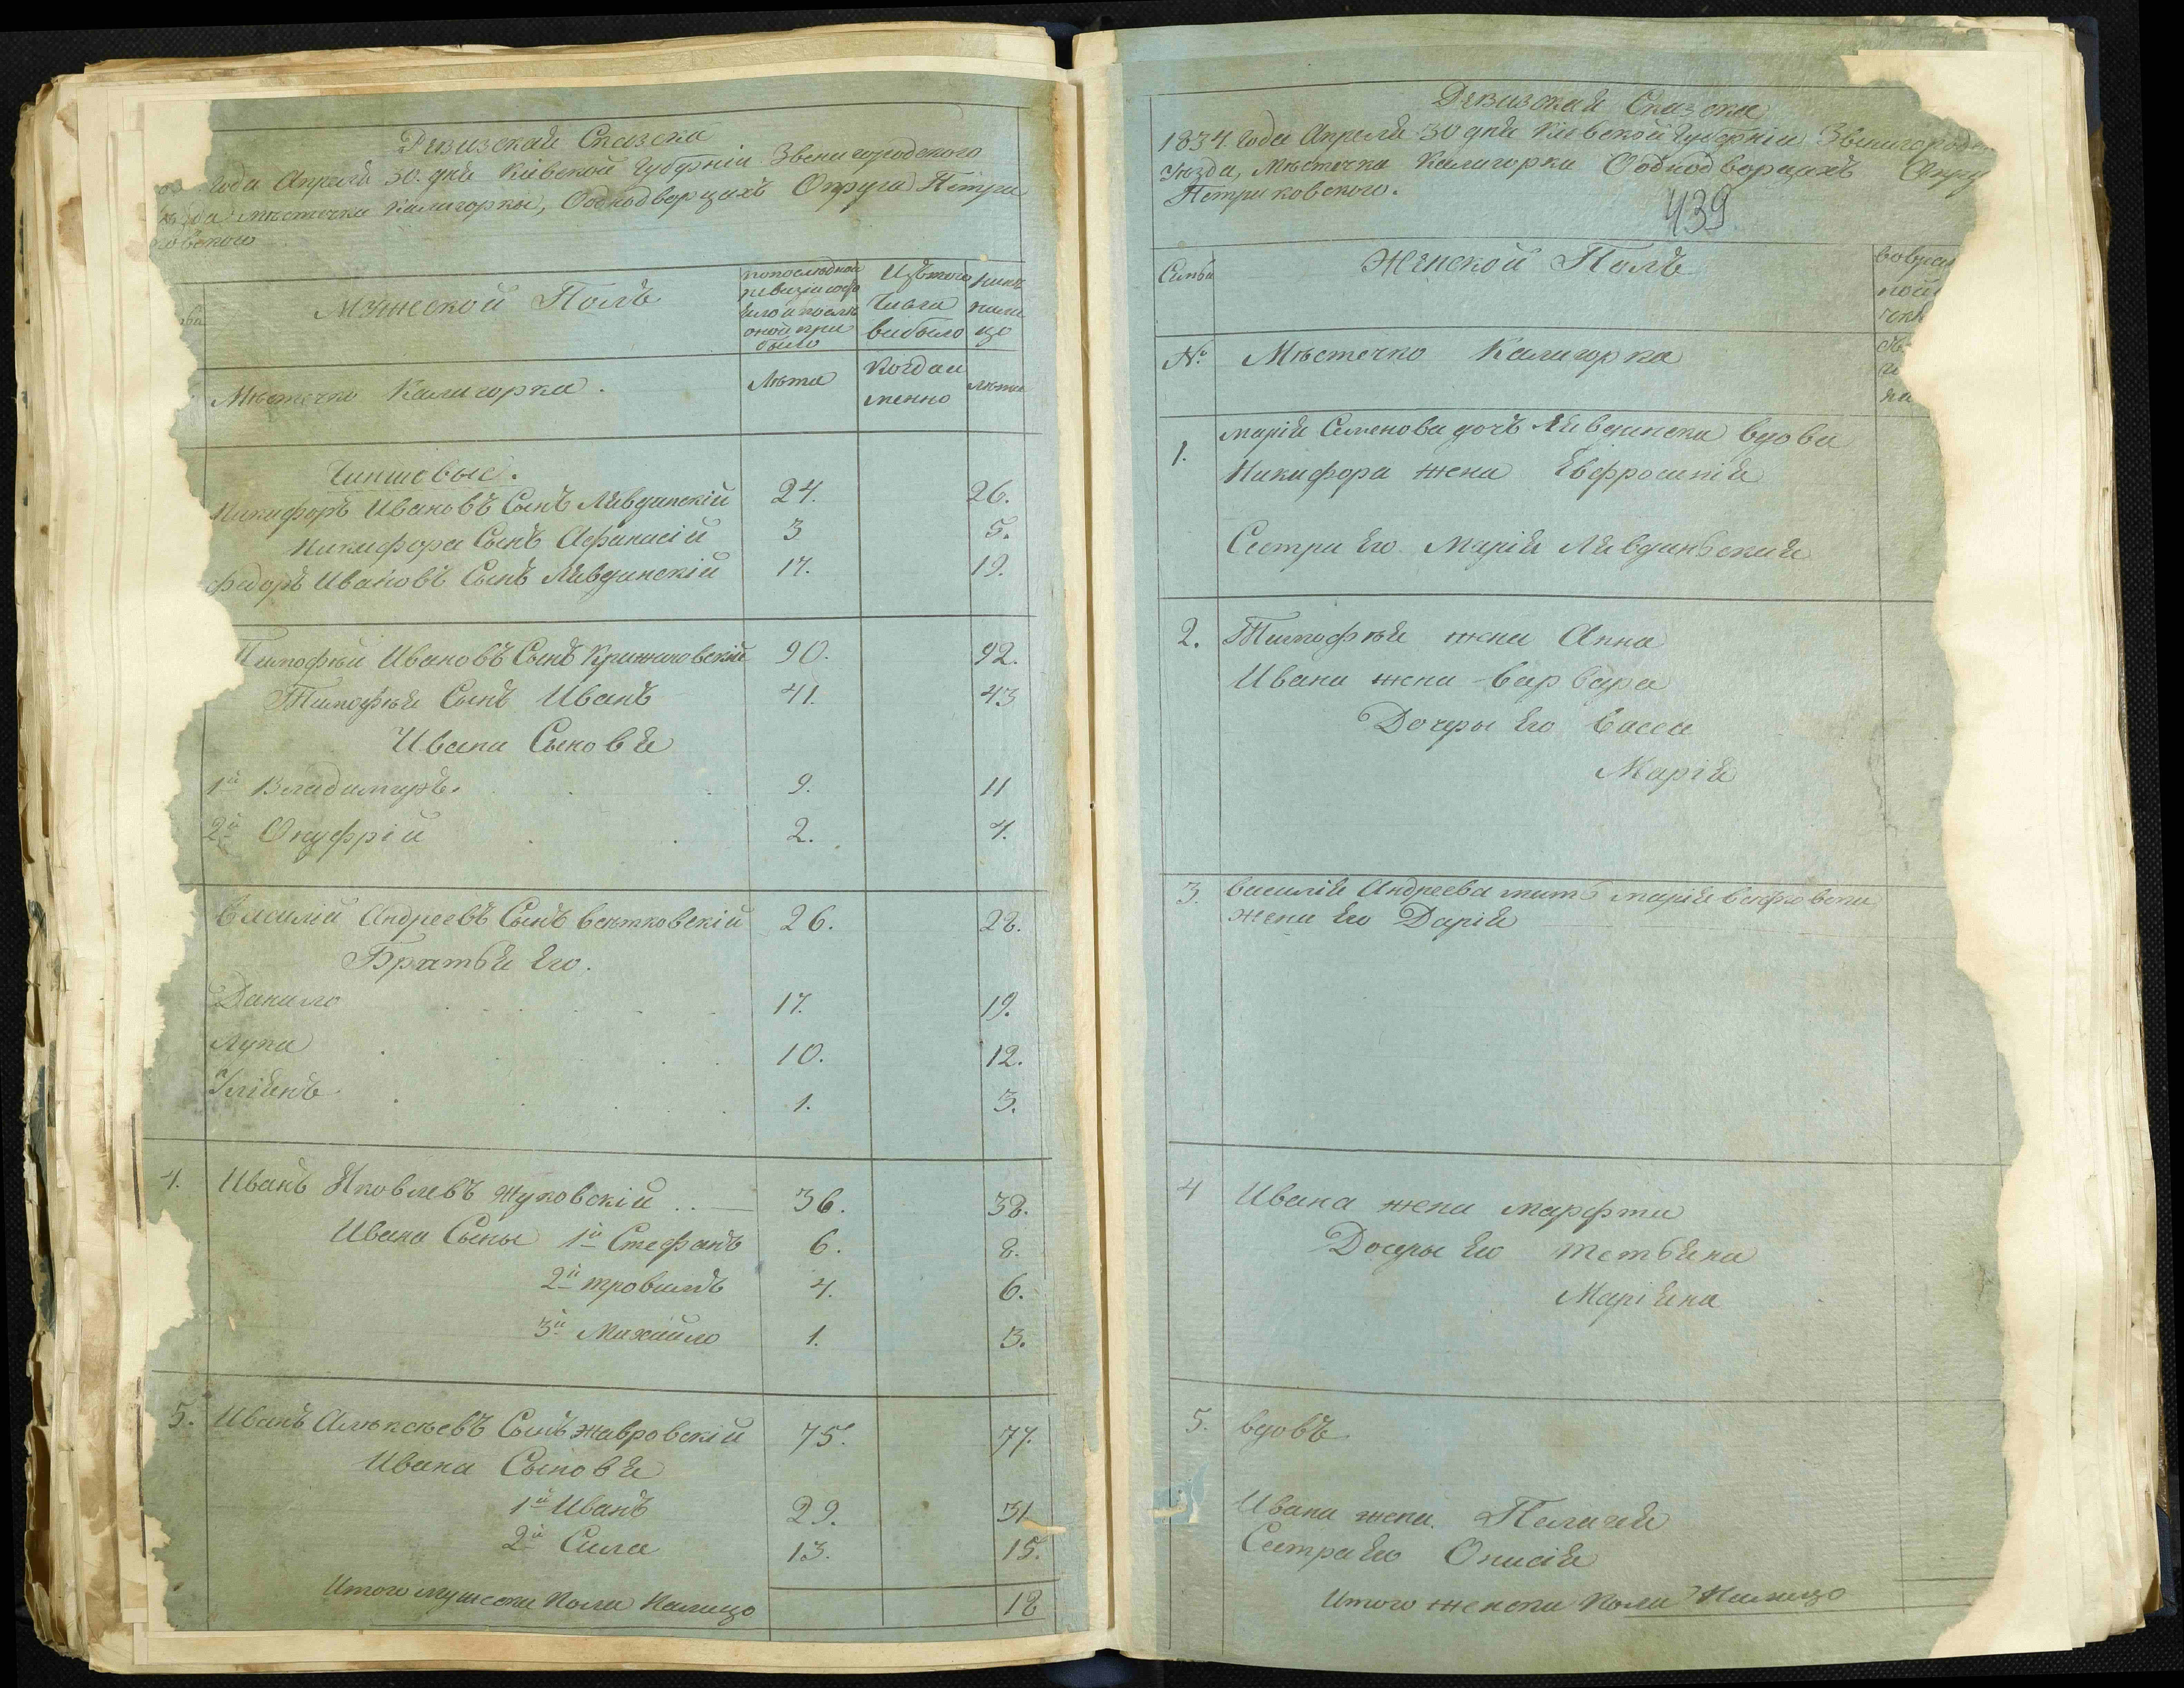 Ревизская Сказска
Года Апреля 30. дня Кіевской Губерніи Звенигородского
мѣстечка Калигорки, Однодворцахъ Округа Петри
ковского
Мужеской Полъ
попослѣдной
ревизіи состо
яло и послѣ
оной при
было
Изътого
числа
выбыло
нынѣ
нали
цо
Мѣстечко Калигорка.
Лѣта
Когда и
менно
лѣта
Чиншовые.
Никифоръ Ивановъ Сынъ Лявдинскій 24. 26.
Никифора Сынъ Афанасій 3 5.
Федоръ Ивановъ Сынъ Лявдинскій 17. 19.
Тимофѣй Ивановъ Сынъ Крижановскій 90. 92.
Тимофѣя Сынъ Иванъ 41. 43
Ивана Сыновя
1й Владимиръ. 9. 11
2й Онуфрій 2. 4.
Василій Андреевъ Сынъ Вентковскій 26. 28.
Братья Его.
Данило 17. 19.
Лука 10. 12.
Уліянъ 1. 3.
4. Иванъ Яковлевъ Жуковскій 36. 38.
Ивана Сыны 1й Стефанъ 6. 8.
2й тровимъ 4. 6.
3й Михайло 1. 3.
5. Иванъ Алѣксѣевъ Сынъ Жавровскій 75. 77.
Ивана Сыновя
1й Иванъ 29. 31
2й Сила 13. 15.
Итого мужеска Пола Налицо 18
Ревизская Сказска
1834 Года Апреля 30 дня Кіевской Губерніи Звенигородс
Уѣзда, Мѣстечка Калигорки Однодворцахъ Окру
Петриковского.
439
Семья
Женской Полъ
№ Мѣстечко Калигорка
1. Марія Семенова дочъ Лявдинска вдова
Никифора жена Евфросинія
Сестра Его Марія Лявдинъская
2. Тимофѣя жена Анна
Ивана жена Варвара
Дочеры Его Васса
Марія
3. Василія Андреева мать Марія
жена Его Дарія
4 Ивана жена Марфта
Дочеры Его Тетьяна
Маріяна
5. вдовъ
Ивана жена. Пелагея
Сестра Его Онисія
Итого женска Пола Налицо